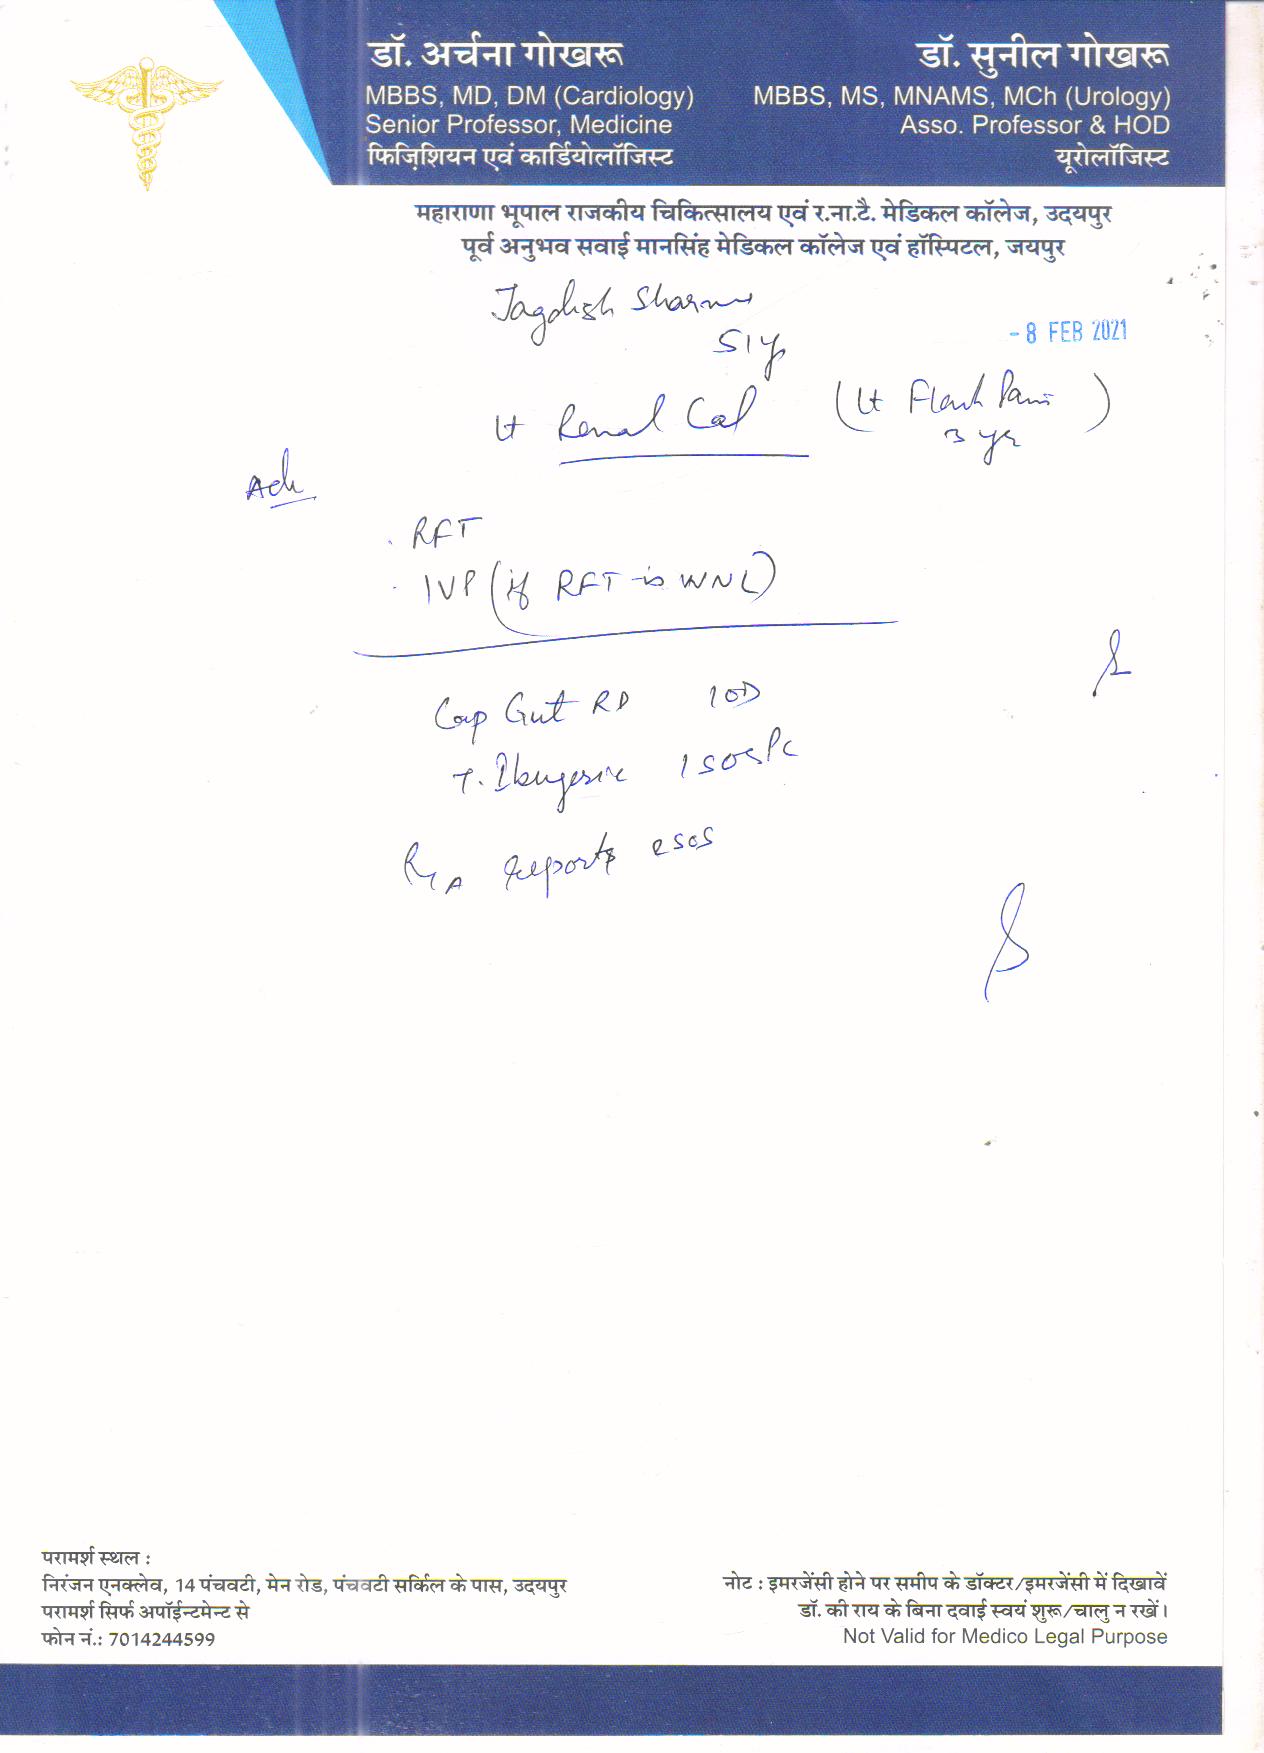 डॉ. अर्चना गोखरू
MBBS, MD, DM (Cardiology)
Senior Professor, Medicine
फिज़िशियन एवं कार्डियोलॉजिस्ट
डॉ. सुनील गोखरू
MBBS, MS, MNAMS, MCh (Urology)
Asso. Professor & HOD
यूरोलॉजिस्ट
महाराणा भूपाल राजकीय चिकित्सालय एवं र.ना.टै. मेडिकल कॉलेज, उदयपुर
पूर्व अनुभव सवाई मानसिंह मेडिकल कॉलेज एवं हॉस्पिटल, जयपुर
Jagdish Sharma
51y
- 8 FEB 2021
Lt Renal Cal (Lt Flank Pain)
3 yr
Adv
. RFT
. IVP (if RFT is WNL)
Cap Gut RD 1 OD
T. Ibugesic 1 SOS PC
R/A reports
परामर्श स्थल :
निरंजन एनक्लेव, 14 पंचवटी, मेन रोड, पंचवटी सर्किल के पास, उदयपुर
परामर्श सिर्फ अपॉईन्टमेन्ट से
फोन नं.: 7014244599
नोट : इमरजेंसी होने पर समीप के डॉक्टर/इमरजेंसी में दिखावें
डॉ. की राय के बिना दवाई स्वयं शुरू/चालु न रखें।
Not Valid for Medico Legal Purpose